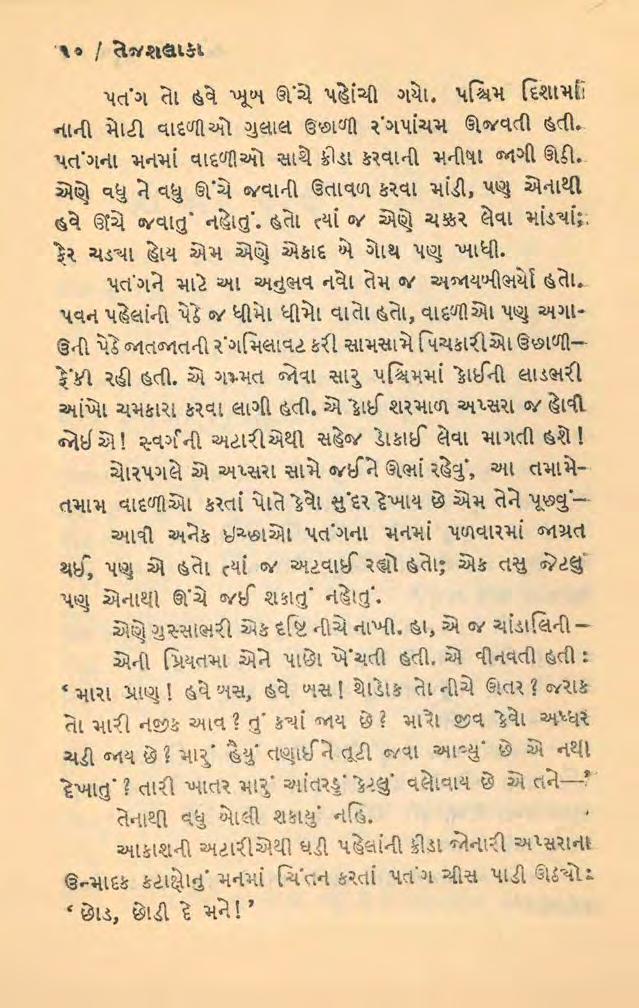 ૧૦ / તેજશલાકા
પતંગ તો હવે ખૂબ ઊંચે પહોંચી ગયો. પશ્ચિમ દિશામાં
નાની મોટી વાદળીઓ ગુલાલ ઉછાળી રંગપાંચમ ઊજવતી હતી.
પતંગના મનમાં વાદળીઓ સાથે ક્રીડા કરવાની મનીષા જાગી ઊઠી.
એણે વધુ ને વધુ ઊંચે જવાની ઉતાવળ કરવા માંડી, પણ એનાથી
હવે ઊંચે જવાતું નહોતું. હતો ત્યાં જ એણે ચક્કર લેવા માંડ્યાં;
ફેર ચડ્યા હોય એમ એણે એકાદ બે ગોથ પણ ખાધી.
પતંગને માટે આ અનુભવ નવો તેમ જ અજાયબીભર્યો હતો.
પવન પહેલાંની પેઠે જ ધીમો ધીમો વાતો હતો, વાદળીઓ પણ અગા-
ઉની પેઠે જાતજાતની રંગમિલાવટ કરી સામસામે પિચકારીઓ ઉછાળી—
ફેંકી રહી હતી. એ ગમ્મત જોવા સારુ પશ્ચિમમાં કોઈની લાડભરી
આંખો ચમકારા કરવા લાગી હતી. એ કોઈ શરમાળ અપ્સરા જ હોવી
જોઈએ! સ્વર્ગની અટારીએથી સહેજ ડોકાઈ લેવા માગતી હશે!
ચોરપગલે એ અપ્સરા સામે જઈને ઊભાં રહેવું, આ તમામે-
તમામ વાદળીઓ કરતાં પોતે કેવો સુંદર દેખાય છે એમ તેને પૂછવું—
આવી અનેક ઇચ્છાઓ પતંગના મનમાં પળવારમાં જાગ્રત
થઈ, પણ એ હતો ત્યાં જ અટવાઈ રહ્યો હતો; એક તસુ જેટલું
પણ એનાથી ઊંચે જઈ શકાતું નહોતું.
એણે ગુસ્સાભરી એક દૃષ્ટિ નીચે નાખી. હા, એ જ ચાંડાલિની—
એની પ્રિયતમા એને પાછો ખેંચતી હતી. એ વીનવતી હતી :
‘મારા પ્રાણ! હવે બસ, હવે બસ! થોડોક તો નીચે ઊતર? જરાક
તો મારી નજીક આવ? તું ક્યાં જાય છે? મારો જીવ કેવો અધ્ધર
ચડી જાય છે? મારું હૈયું તણાઈને તૂટી જવા આવ્યું છે એ નથી
દેખાતું? તારી ખાતર મારું આંતરડું કેટલું વલોવાય છે એ તને—?’
તેનાથી વધુ બોલી શકાયું નહિ.
આકાશની અટારીએથી ઘડી પહેલાંની ક્રીડા જોનારી અપ્સરાના
ઉન્માદક કટાક્ષોનું મનમાં ચિંતન કરતાં પતંગ ચીસ પાડી ઊઠ્યો :
‘છોડ, છોડી દે મને!’